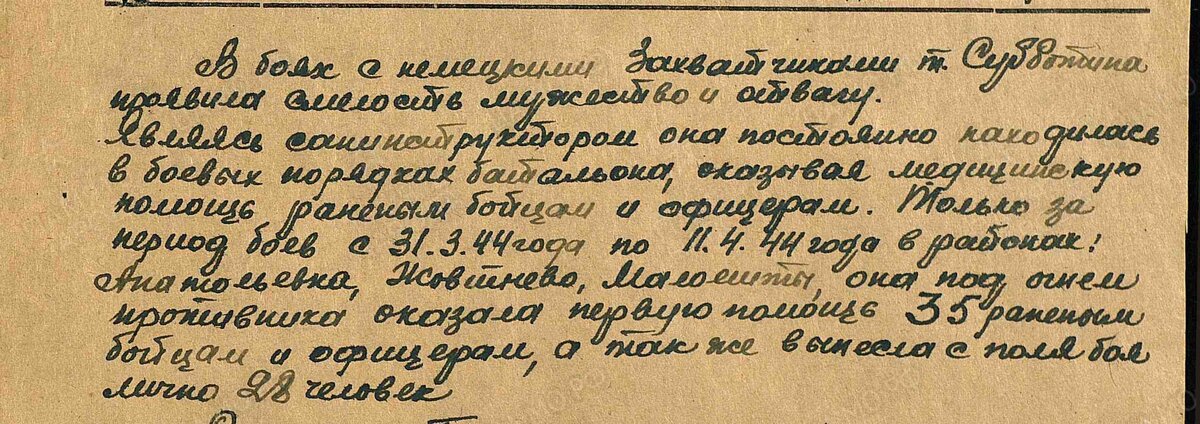 В боях с немецкими Захватчиками т. Субботина
проявила смелость мужество и отвагу.
Являясь санинструктором она постоянно находилась
в боевых порядках батальона, оказывая медицинскую
помощь раненым бойцам и офицерам. Только за
период боев с 31.3.44 года по 11.4.44 года в районах:
Анатольевка, Жовтнево, Малоешты, она под огнем
противника оказала первую помощь 35 раненым
бойцам и офицерам, а так же вынесла с поля боя
лично 28 человек